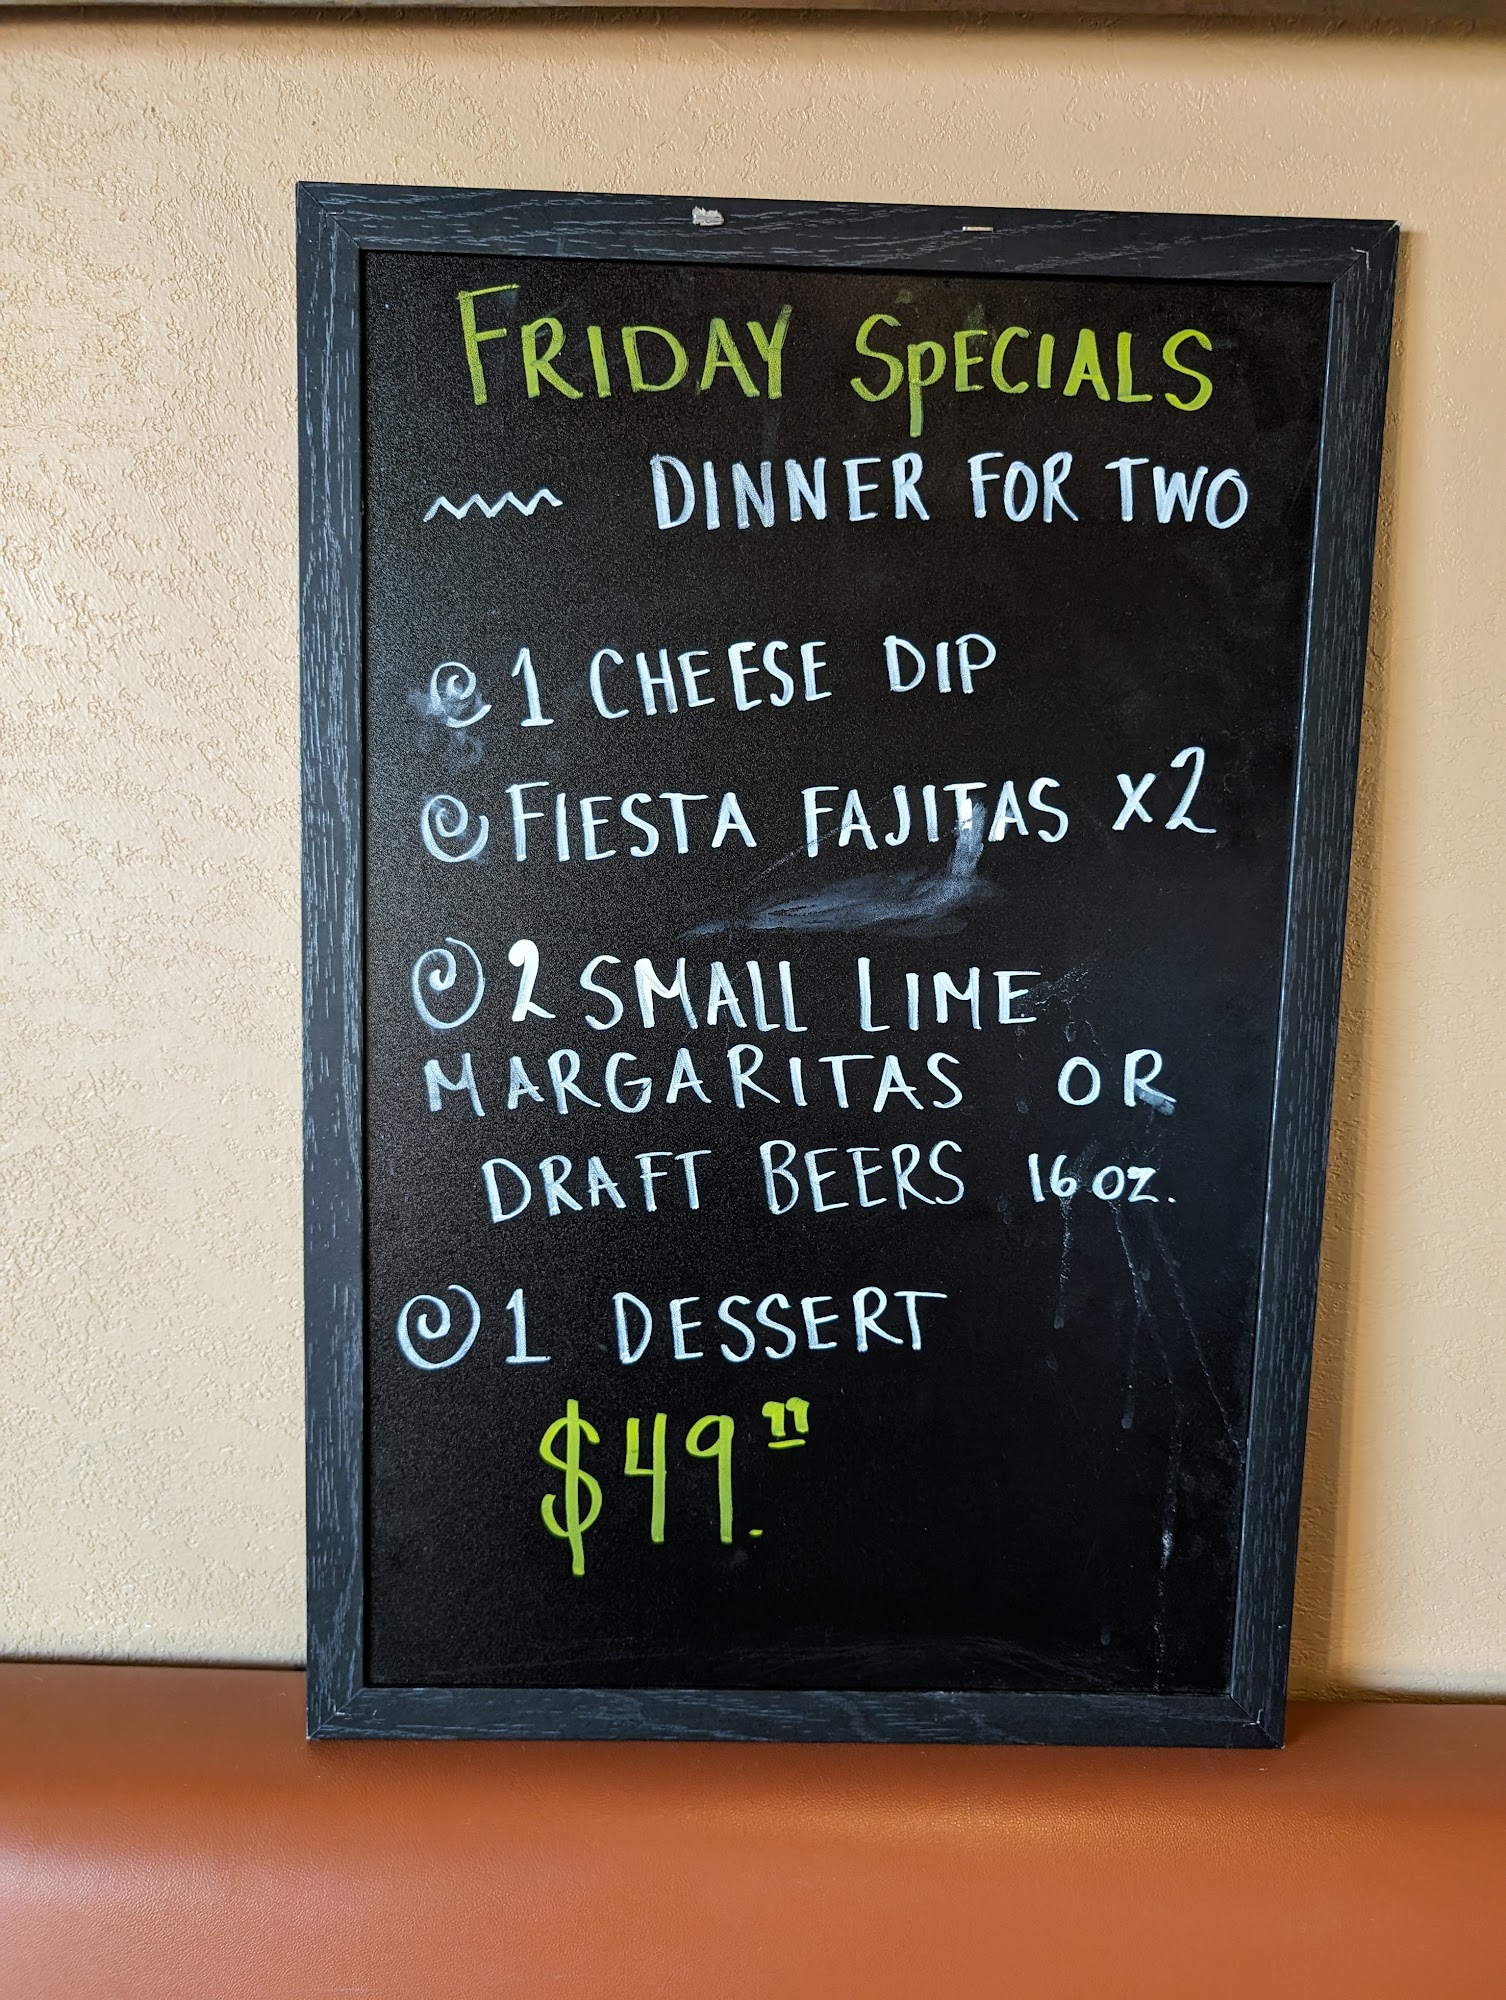 FRIDAY SPECIALS
DINNER FOR TWO
1 CHEESE DIP
FIESTA FAJITAS x2
2 SMALL LIME
MARGARITAS OR
DRAFT BEERS 16 OZ.
1 DESSERT
$49.99